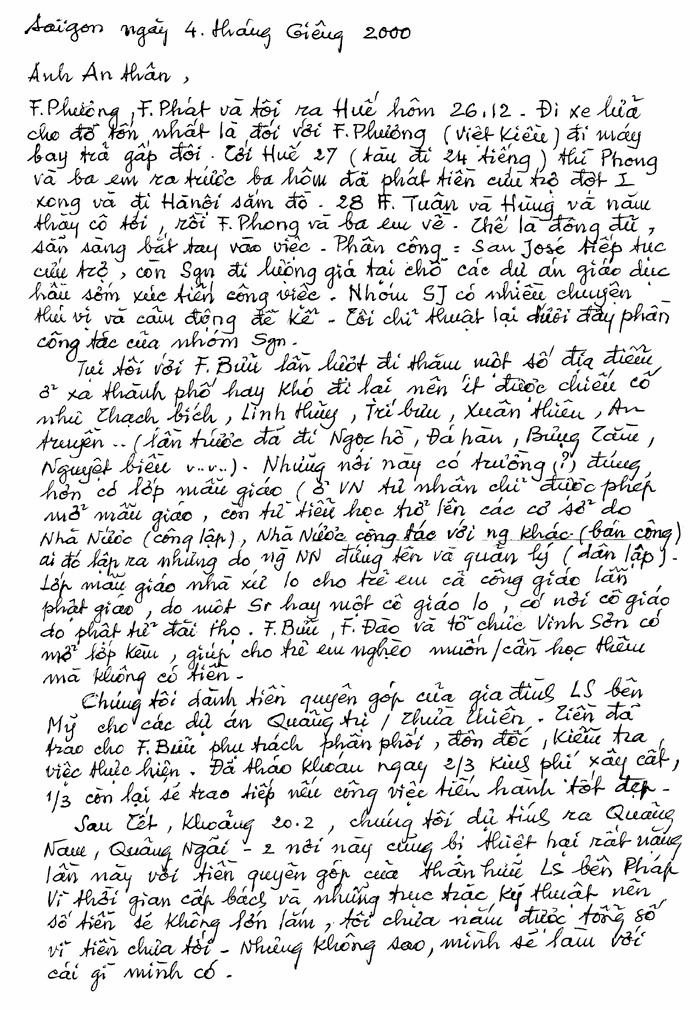 Saigon ngày 4. tháng Giêng 2000
Anh An thân,
F.Phương, F.Phát và tôi ra Huế hôm 26.12 - Đi xe lửa
cho đỡ tốn nhất là đối với F.Phương (Việt Kiều) đi máy
bay trả gấp đôi. Tới Huế 27 (tàu đi 24 tiếng) thì Phong
và ba em ra trước ba hôm đã phát tiền cứu trợ đợt I
xong và đi Hànội sắm đồ. 28 F. Tuân và Hùng và năm
thầy cô tới, rồi F.Phong và ba em về. Thế là đông đủ,
sẵn sàng bắt tay vào việc. Phân công: San José tiếp tục
cứu trợ, còn Sgn đi lượng giá tại chỗ các dự án giáo dục
hầu sớm xúc tiến công việc. Nhóm SJ có nhiều chuyện
thú vị và cảm động để kể - Tôi chỉ thuật lại dưới đây phần
công tác của nhóm Sgn.
Tụi tôi với F. Bửu lần lượt đi thăm một số địa điểm
ở xa thành phố hay khó đi lại nên ít được chiếu cố
như Thạch bích, Linh thủy, Trí bưu, Xuân thiên, An
truyền .. (lần trước đã đi Ngọc hồ, Đá hàn, Bủng Tàu,
Nguyệt biều v..v..). Những nơi này có trường (?) đúng
hơn có lớp mẫu giáo (ở VN tư nhân chỉ được phép
mở mẫu giáo, còn từ tiểu học trở lên các cơ sở do
Nhà Nước (công lập), Nhà Nước cộng tác với ng khác (bán công)
ai đó lập ra nhưng do ng NN đứng tên và quản lý (dân lập).
Lớp mẫu giáo nhà xứ lo cho trẻ em cả công giáo lẫn
phật giáo, do một Sr hay một cô giáo lo, có nơi cô giáo
do phật tử đài thọ. F.Bửu, F.Đào và tổ chức Vinh Sơn có
mở lớp kèm, giúp cho trẻ em nghèo muốn/cần học thêm
mà không có tiền -
Chúng tôi dành tiền quyên góp của gia đình LS bên
Mỹ cho các dự án Quảng trị / Thừa Thiên. Tiền đã
trao cho F.Bửu phụ trách phân phối, đôn đốc, kiểm tra
việc thực hiện. Đã tháo khoán ngay 2/3 kinh phí xây cất,
1/3 còn lại sẽ trao tiếp nếu công việc tiến hành tốt đẹp -
Sau Tết, khoảng 20.2, chúng tôi dự tính ra Quảng
Nam, Quảng Ngãi - 2 nơi này cũng bị thiệt hại rất nặng
lần này với tiền quyên góp của thân hữu LS bên Pháp
Vì thời gian cấp bách và những trục trặc kỹ thuật nên
số tiền sẽ không lớn lắm, tôi chưa nắm được tổng số
vì tiền chưa tới - Nhưng không sao, mình sẽ làm với
cái gì mình có.